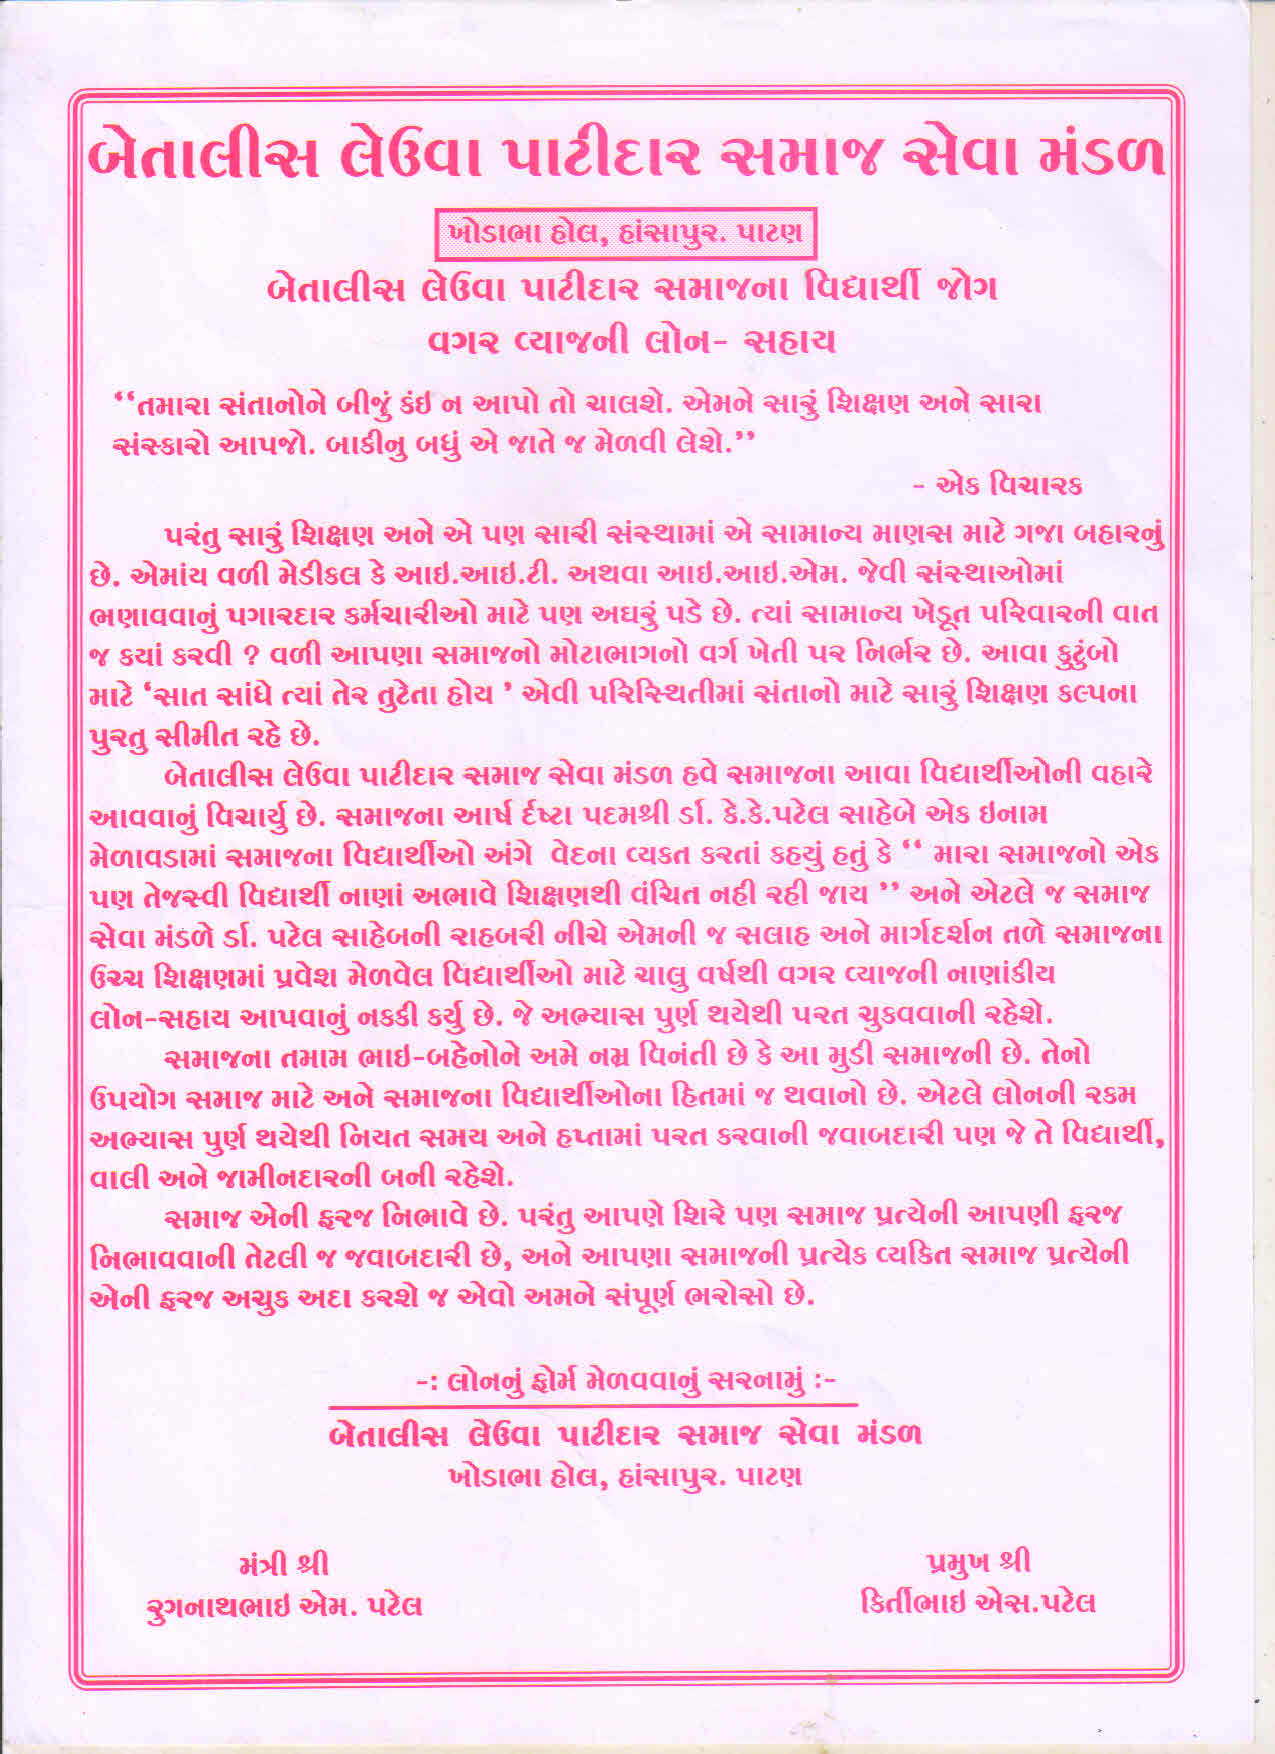 બેતાલીસ લેઉવા પાટીદાર સમાજ સેવા મંડળ
ખોડાભા હોલ, હાંસાપુર. પાટણ
બેતાલીસ લેઉવા પાટીદાર સમાજના વિદ્યાર્થી જોગ
વગર વ્યાજની લોન- સહાય
‘‘તમારા સંતાનોને બીજું કંઇ ન આપો તો ચાલશે. એમને સારું શિક્ષણ અને સારા
સંસ્કારો આપજો. બાકીનુ બધું એ જાતે જ મેળવી લેશે.’’
- એક વિચારક
પરંતુ સારું શિક્ષણ અને એ પણ સારી સંસ્થામાં એ સામાન્ય માણસ માટે ગજા બહારનું
છે. એમાંય વળી મેડીકલ કે આઇ.આઇ.ટી. અથવા આઇ.આઇ.એમ. જેવી સંસ્થાઓમાં
ભણાવવાનું પગારદાર કર્મચારીઓ માટે પણ અઘરું પડે છે. ત્યાં સામાન્ય ખેડૂત પરિવારની વાત
જ કયાં કરવી ? વળી આપણા સમાજનો મોટાભાગનો વર્ગ ખેતી પર નિર્ભર છે. આવા કુટુંબો
માટે ‘સાત સાંધે ત્યાં તેર તુટેતા હોય ’ એવી પરિસ્થિતીમાં સંતાનો માટે સારું શિક્ષણ કલ્પના
પુરતુ સીમીત રહે છે.
બેતાલીસ લેઉવા પાટીદાર સમાજ સેવા મંડળ હવે સમાજના આવા વિદ્યાર્થીઓની વહારે
આવવાનું વિચાર્યુ છે. સમાજના આર્ષ ર્દષ્ટા પદમશ્રી ર્ડા. કે.કે.પટેલ સાહેબે એક ઇનામ
મેળાવડામાં સમાજના વિદ્યાર્થીઓ અંગે વેદના વ્યકત કરતાં કહયું હતું કે ‘‘ મારા સમાજનો એક
પણ તેજસ્વી વિદ્યાર્થી નાણાં અભાવે શિક્ષણથી વંચિત નહી રહી જાય ’’ અને એટલે જ સમાજ
સેવા મંડળે ર્ડા. પટેલ સાહેબની રાહબરી નીચે એમની જ સલાહ અને માર્ગદર્શન તળે સમાજના
ઉચ્ચ શિક્ષણમાં પ્રવેશ મેળવેલ વિદ્યાર્થીઓ માટે ચાલુ વર્ષથી વગર વ્યાજની નાણાંકીય
લોન-સહાય આપવાનું નકકી કર્યુ છે. જે અભ્યાસ પુર્ણ થયેથી પરત ચુકવવાની રહેશે.
સમાજના તમામ ભાઇ-બહેનોને અમે નમ્ર વિનંતી છે કે આ મુડી સમાજની છે. તેનો
ઉપયોગ સમાજ માટે અને સમાજના વિદ્યાર્થીઓના હિતમાં જ થવાનો છે. એટલે લોનની રકમ
અભ્યાસ પુર્ણ થયેથી નિયત સમય અને હપ્તામાં પરત કરવાની જવાબદારી પણ જે તે વિદ્યાર્થી,
વાલી અને જામીનદારની બની રહેશે.
સમાજ એની ફરજ નિભાવે છે. પરંતુ આપણે શિરે પણ સમાજ પ્રત્યેની આપણી ફરજ
નિભાવવાની તેટલી જ જવાબદારી છે, અને આપણા સમાજની પ્રત્યેક વ્યકિત સમાજ પ્રત્યેની
એની ફરજ અચુક અદા કરશે જ એવો અમને સંપૂર્ણ ભરોસો છે.
-: લોનનું ફોર્મ મેળવવાનું સરનામું :-
બેતાલીસ લેઉવા પાટીદાર સમાજ સેવા મંડળ
ખોડાભા હોલ, હાંસાપુર. પાટણ
મંત્રી શ્રી
રુગનાથભાઇ એમ. પટેલ
પ્રમુખ શ્રી
કિર્તીભાઇ એસ.પટેલ